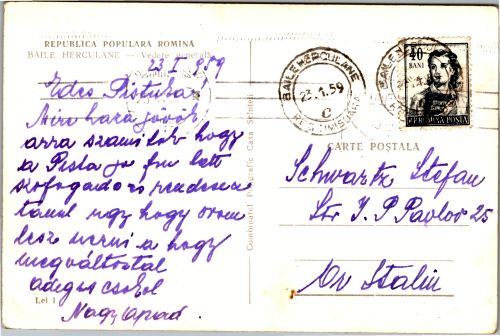 REPUBLICA POPULARĂ ROMÎNĂ
BĂILE HERCULANE — Vedere generală
23 I 959
Edes Pistuka
Mire haza jövök
arra szamitok hogy
a Pista jo fiu lett
szofogado es rendesen
tanul ugy hogy orom
lesz nezni a hogy
megváltoztal
Nagyapad.
Lei 1
Combinatul Poligrafic Casa Scînteii
BAILE HERCULANE
23.1.59
REG. TIMIȘOARA
40
BANI
R.P. ROMINA POSTA
CARTE POȘTALĂ
Schwartz Stefan
Str I. P. Pavlov 25
Or Stalin